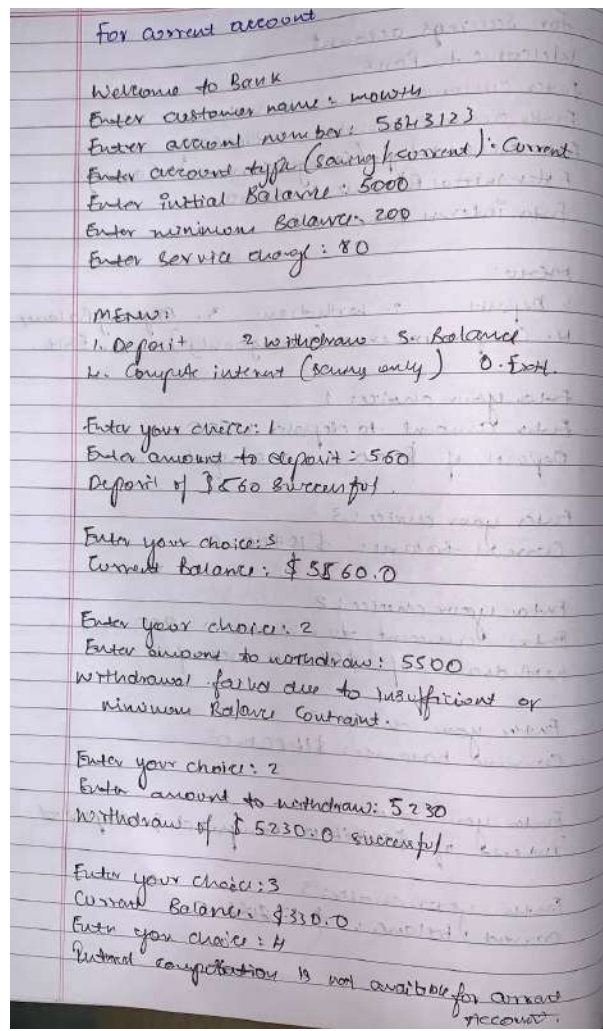 For current account
Welcome to Bank
Enter customer name: mowth
Enter account number: 5643123
Enter account type (saving/current): Current
Enter initial Balance: 5000
Enter minimum Balance: 200
Enter service charge: 80
MENU:
1. Deposit 2 withdraw 3. Balance
4. Compute interest (saving only) 0. Exit.
Enter your choice: 1
Enter amount to deposit: 560
Deposit of $560 successful.
Enter your choice: 3
Current Balance: $5560.0
Enter your choice: 2
Enter amount to withdraw: 5500
Withdrawal failed due to insufficient or
minimum Balance Contraint.
Enter your choice: 2
Enter amount to withdraw: 5230
Withdraw of $5230.0 successful.
Enter your choice: 3
Current Balance: $330.0
Enter your choice: 4
Interest computation is not available for current
Account.